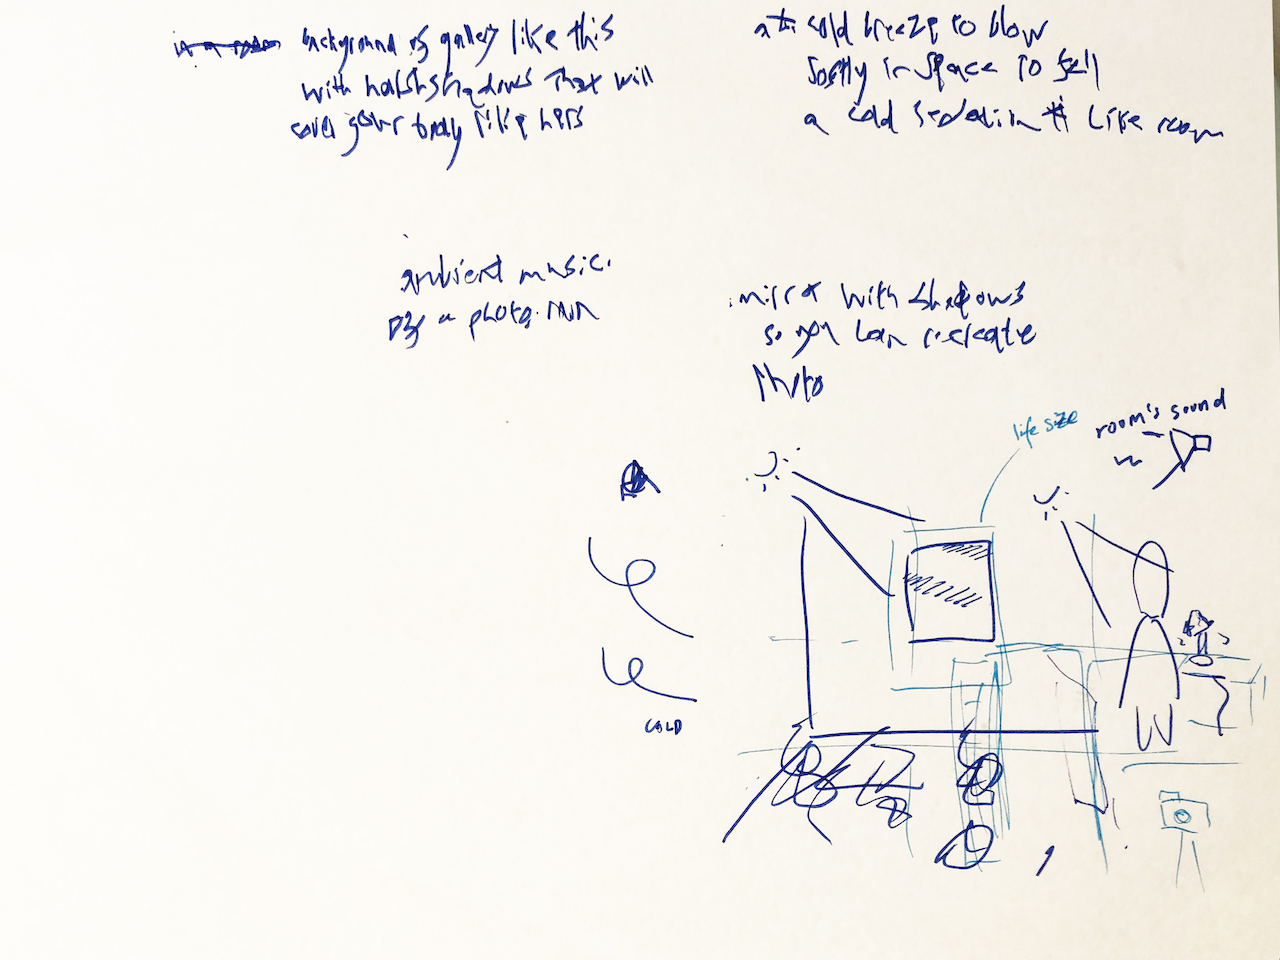 background of gallery like this
with harsh shadows that will
cover your body like hers
a cold breeze to blow
softly in space to feel
a cold sedation like room
ambient music.
by a photo.
mirror with shadows
so you can recreate
photo
life size
room's sound
COLD